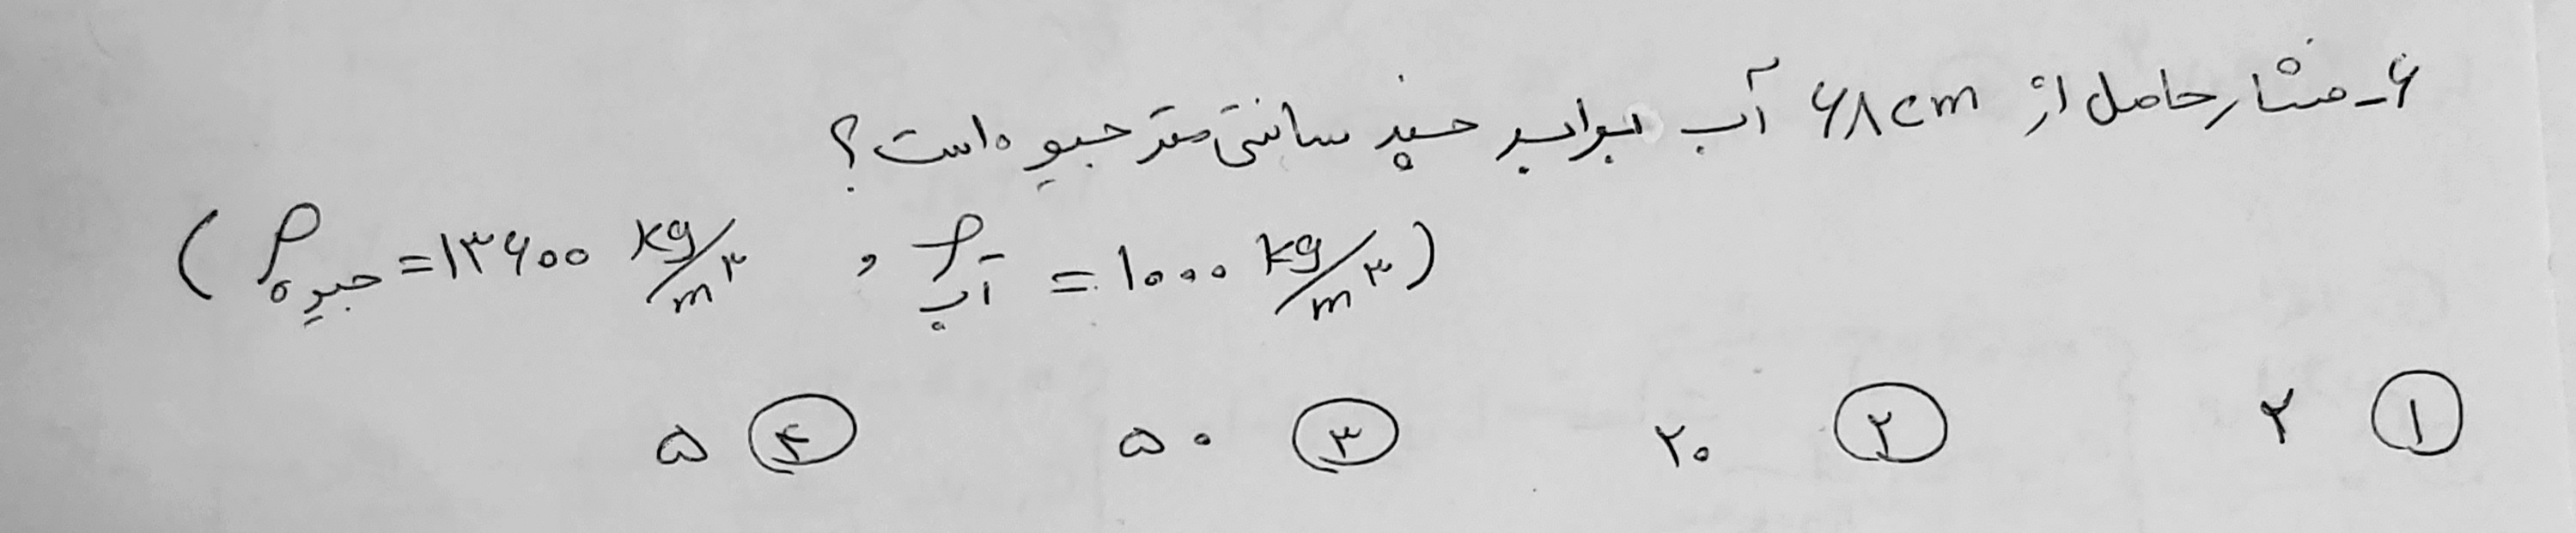 ۶- فشار حاصل از ۶۸cm آب برابر چند سانتی متر جیوه است؟
(ρجیوه = ۱۳۶۰۰ kg/m³ , ρآب = ۱۰۰۰ kg/m³)
① ۲ ② ۲۰ ③ ۵۰ ④ ۵